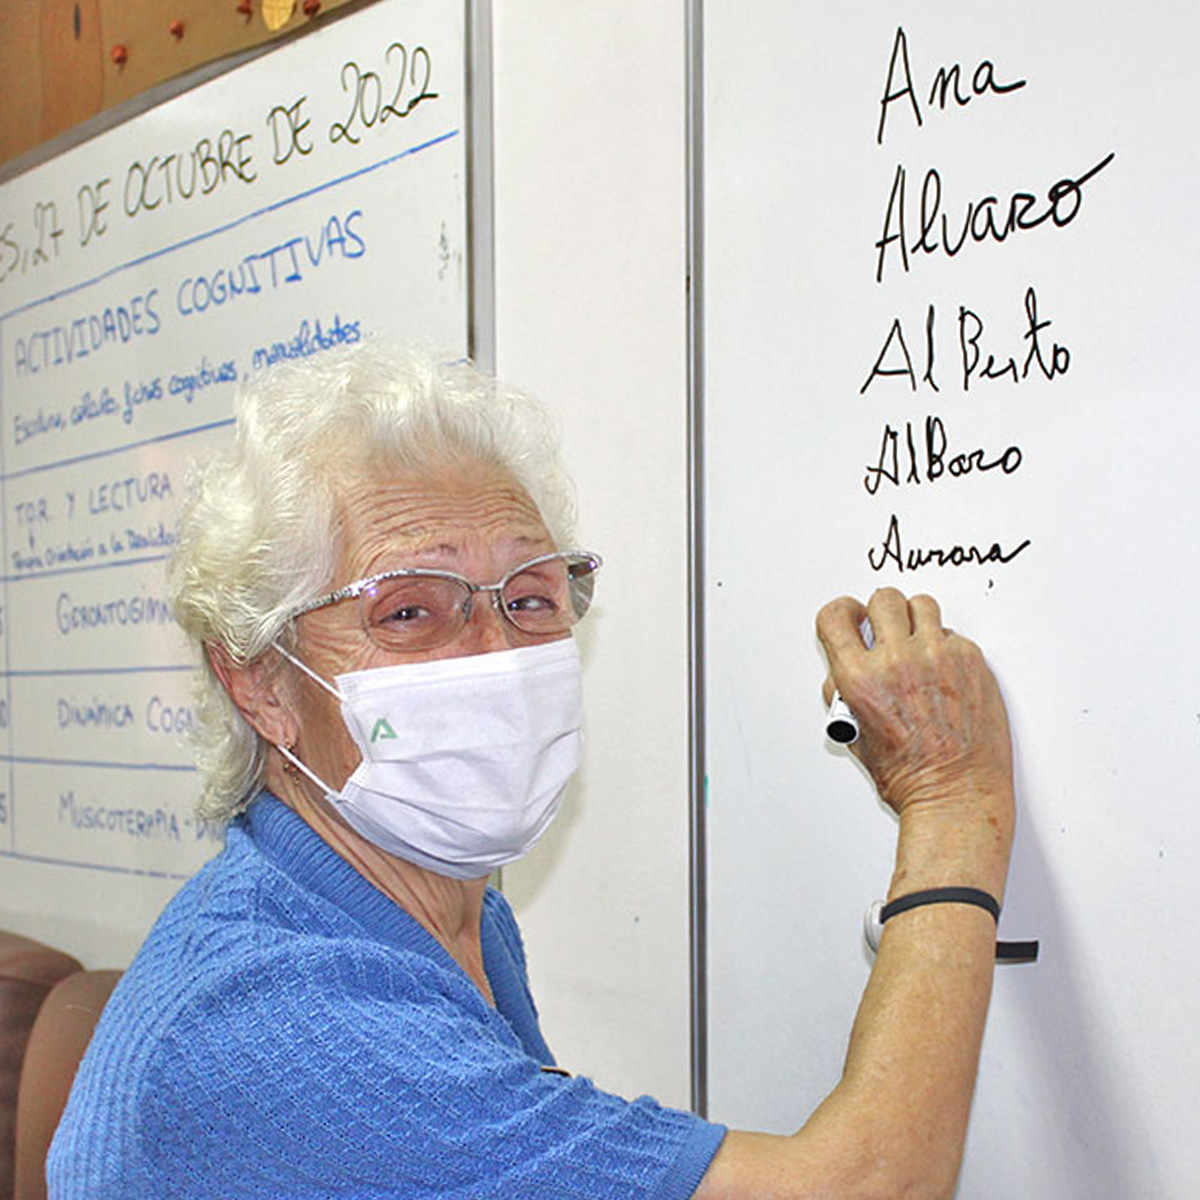 27 DE OCTUBRE DE 2022
ACTIVIDADES COGNITIVAS
Escritura, cálculo, fichas cognitivas, manualidades..
T.O.R. Y LECTURA
Terapia Orientación a la Realidad
GERONTOGIMN
DINÁMICA COGN
MUSICOTERAPIA -
Ana
Alvaro
AlBerto
AlBaro
Aurora
A